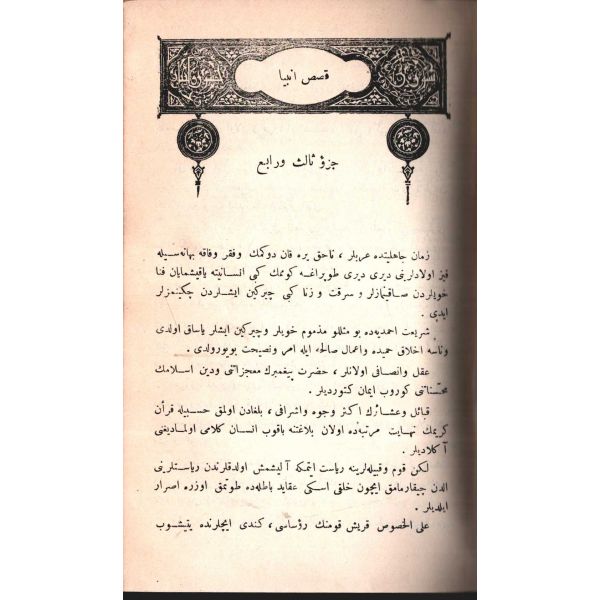 قصص انبيا
جزؤ ثالث ورابع
زمان جاهليتده عربلر ، ناحق يره قان دوكمك وفقر وفاقه بهانه‌سيله
قيز اولادلرينى ديرى ديرى طوپراغه كومك كبى انسانيته ياقيشمايان فنا
خويلردن صاقينمازلر و سرقت و زنا كبى چيركين ايشلردن چكينمزلر
ايدى .
شريعت احمديه‌ده بو مثللو مذموم خويلر وچيركين ايشلر ياساق اولدى
وناسه اخلاق حميده واعمال صالحه ايله امر ونصيحت بويورولدى .
عقل وانصافى اولانلر ، حضرت پيغمبرك معجزاتنى ودين اسلامك
محسناتنى كوروب ايمان كتورديلر .
قبائل وعشائرك اكثر وجوه واشرافى ، بلغادن اولمق حسبيله قرآن
كريمك نهايت مرتبه‌ده اولان بلاغتنه باقوب انسان كلامى اولماديغنى
آكلاديلر .
لكن قوم وقبيله‌لرينه رياست ايتمكه آليشمش اولدقلرندن رياستلرينى
الدن چيقارمامق ايچون خلقى اسكى عقايد باطله‌ده طوتمق اوزره اصرار
ايلديلر .
على الخصوص قريش قومنك رؤساسى ، كندى ايچلرنده يتيشوب